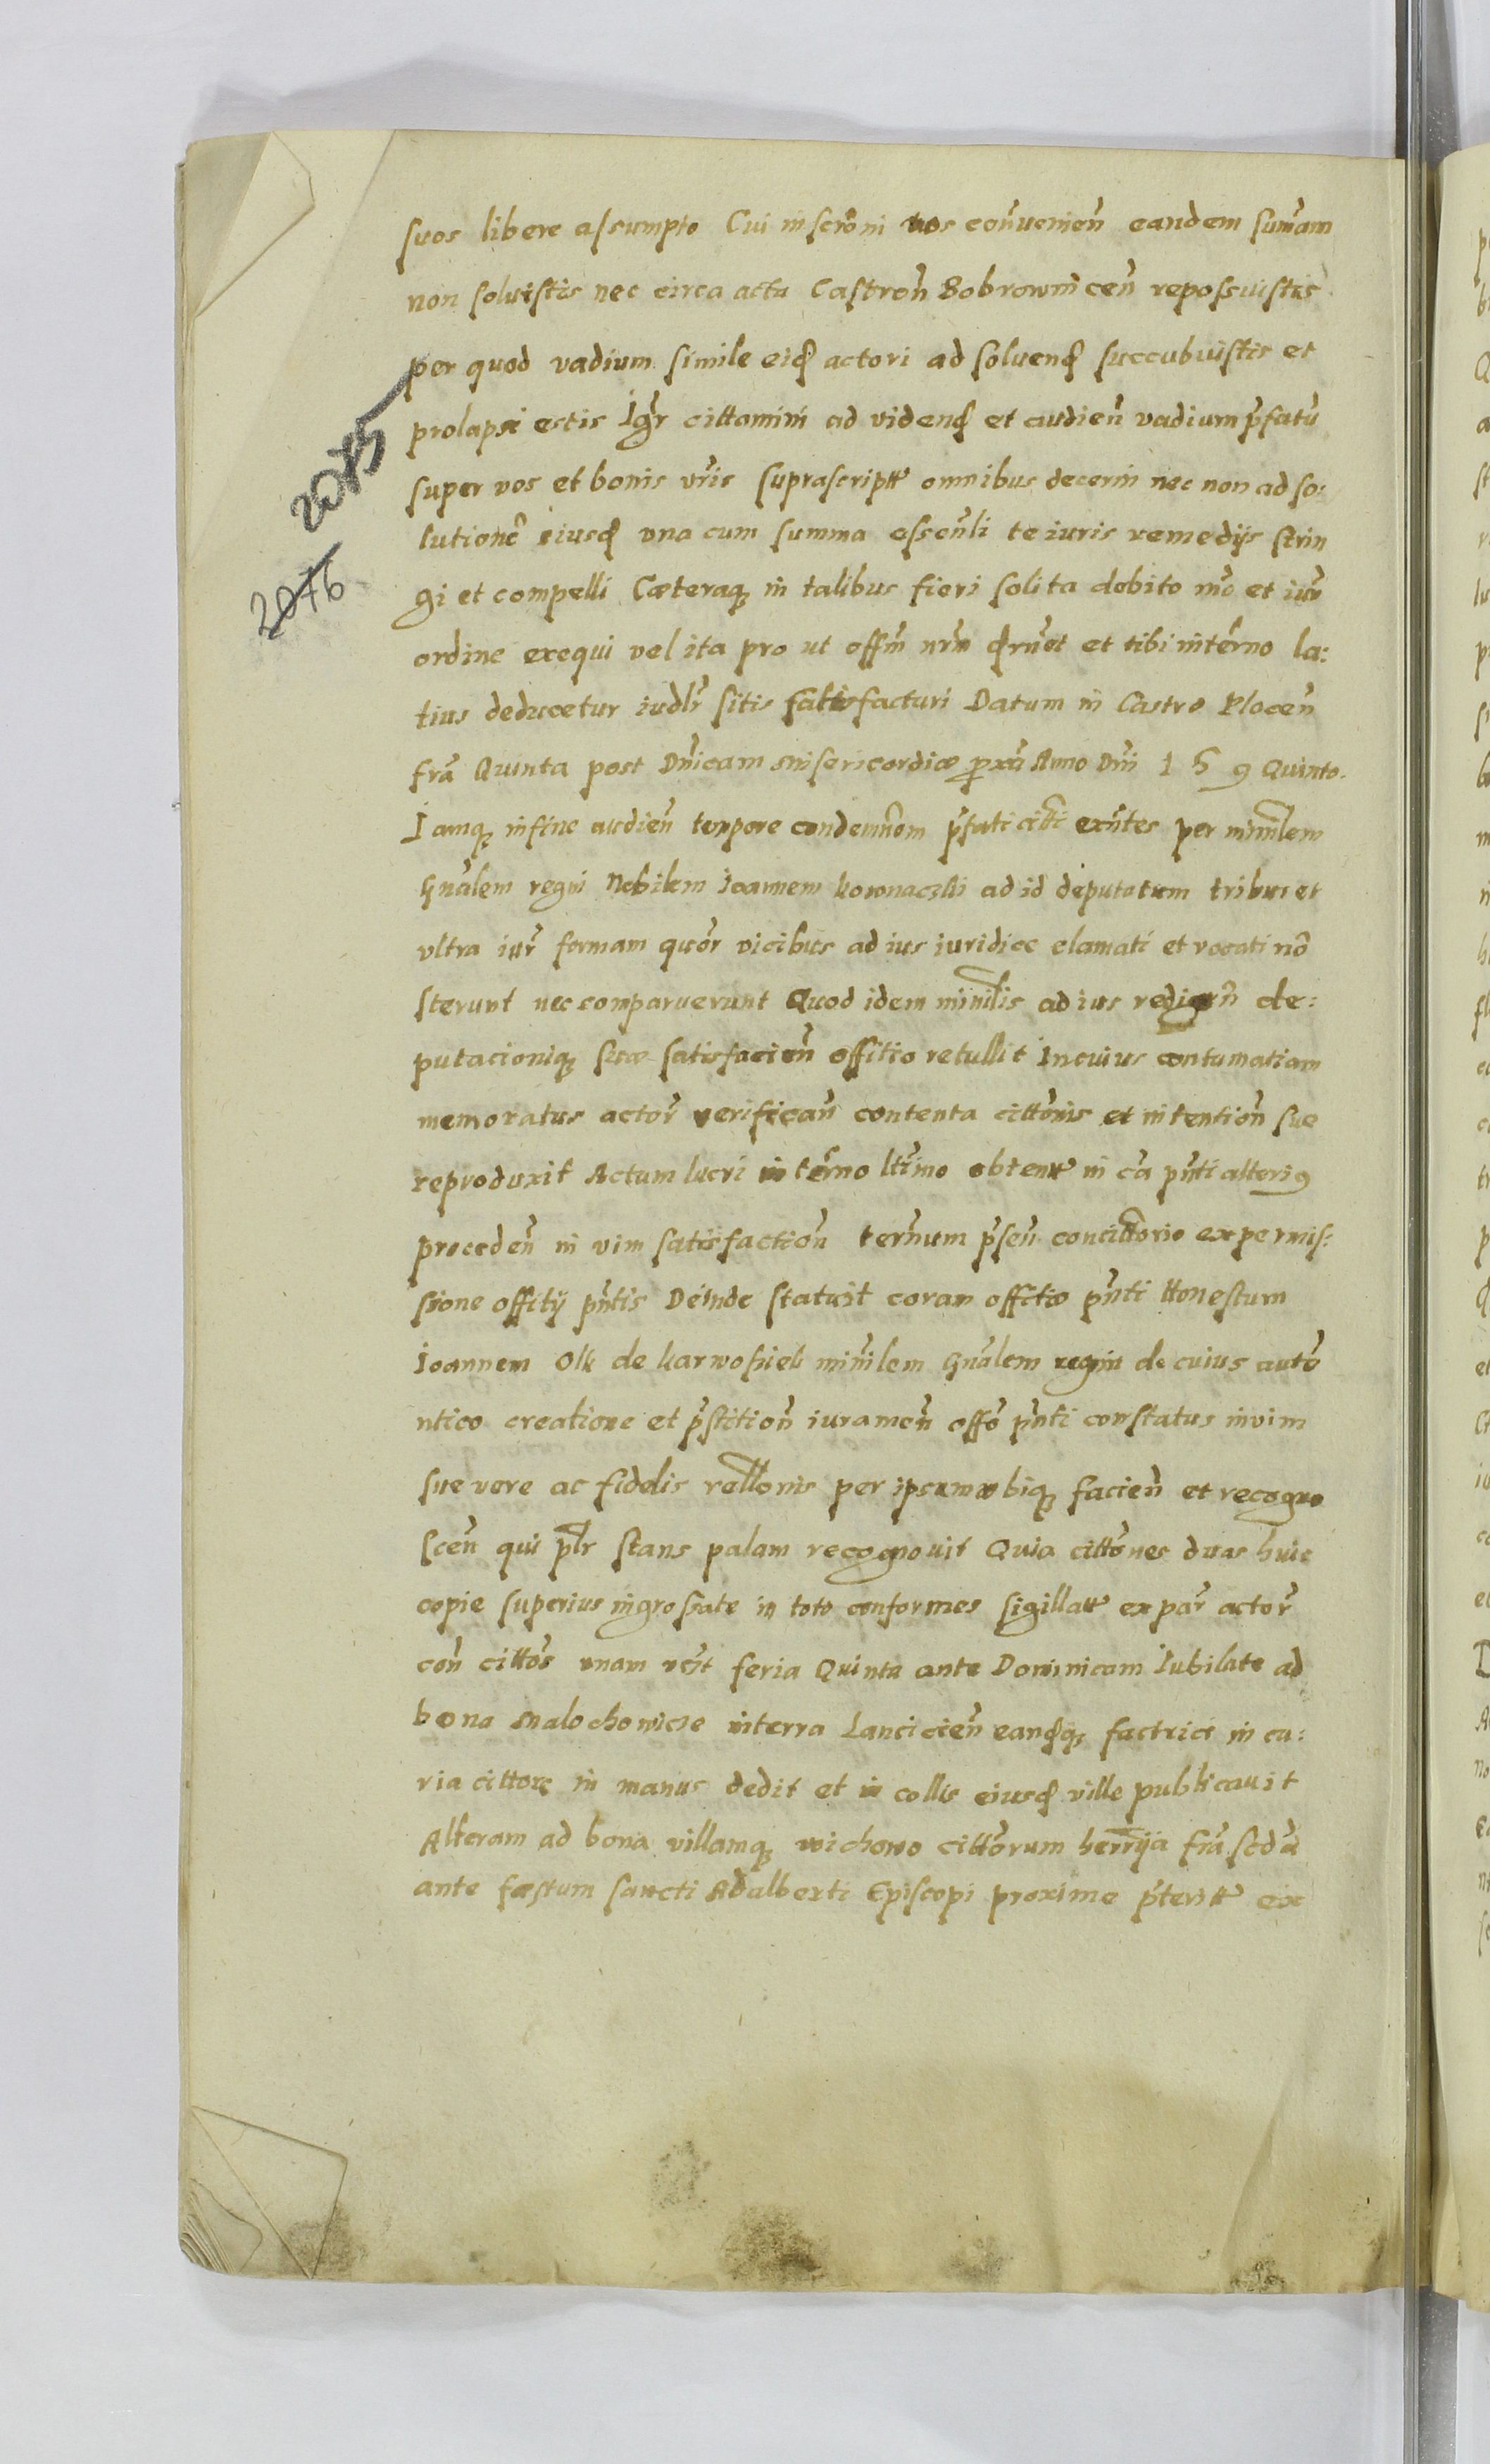 suos libere assumpto Cui inscrōni vos cōnuenien̄ eandem sum̄am
non soluistis nec circa acta Castren̄ Bobrownicen̄ reposuistis
per quod vadium simile eid actori ad soluend succubuistis et
prolapsi estis Igr̄ cittamini ad vidend et audien̄ vadium p̄fatū
super vos et bonis vr̄is suprascriptt omnibus decerni nec non ad so:
lutionē eiusd vna cum summa essen̄li te iuris remedijs strin
gi et compelli Cæteraq in talibus fieri solita debito mō et iur̄
ordine exequi vel ita pro ut offm̄ nrm̄ et tibi in tērno la:
tius deducetur iudlr̄ sitis satisfacturi Datum in Castro Plocen̄
fr̄a Quinta post Dn̄icam Misericordiæ p̄xā Anno Dn̄i 1 5 9 Quinto.
Iamq in fine audien̄ tempore condemn̄om p̄fati citti exn̄tes per min̄rlem
Gn̄alem regni Nobilem Ioannem kownaczki ad id deputatum tribus et
vltra iur̄ formam quōr vicibus ad ius iuridice clamati et vocati nō
sterunt nec comparuerunt Quod idem min̄rlis ad ius redien̄ de:
putacioniq suæ satisfacien̄ offitio retullit In cuius contumatiam
memoratus actor̄ verifican̄ contenta cittōnis et intention̄ sue
reproduxit Actum lucri in tērno ltīmo obtentt in cā pn̄ti alterig
proceden̄ in vim satisfaction̄ tern̄um p̄sen̄ concittōrio ex permis:
sione offitij pn̄tis Deinde statuit coram offitio pn̄ti Honestum
Ioannem Olk de karwosieki min̄rlem Gn̄alem regni de cuius autē
ntico creatione et p̄stition̄ iuramen̄ offō pn̄ti constatus in vim
sue vere ac fidelis rellōnis per ipsum vbiq facien̄ et recogno
scen̄ qui pl̄r stans palam recognouit Quia cittōnes duas huic
copie superius ingrossate in toto conformes sigillatt ex par̄ actor̄
con̄ cittōs vnam vz̄t feria Quinta ante Dominicam Iubilate ad
bona Malochowicze in terra Lancicien̄ eandq factrici in cu:
ria cittōrz in manus dedit et in collis eiusd ville publicauit
Alteram ad bona villamq wichowo cittōrum herr̄ija fr̄a scdā
ante fæstum sancti Adalberti Episcopi proxime p̄teritt ex
2085
2076